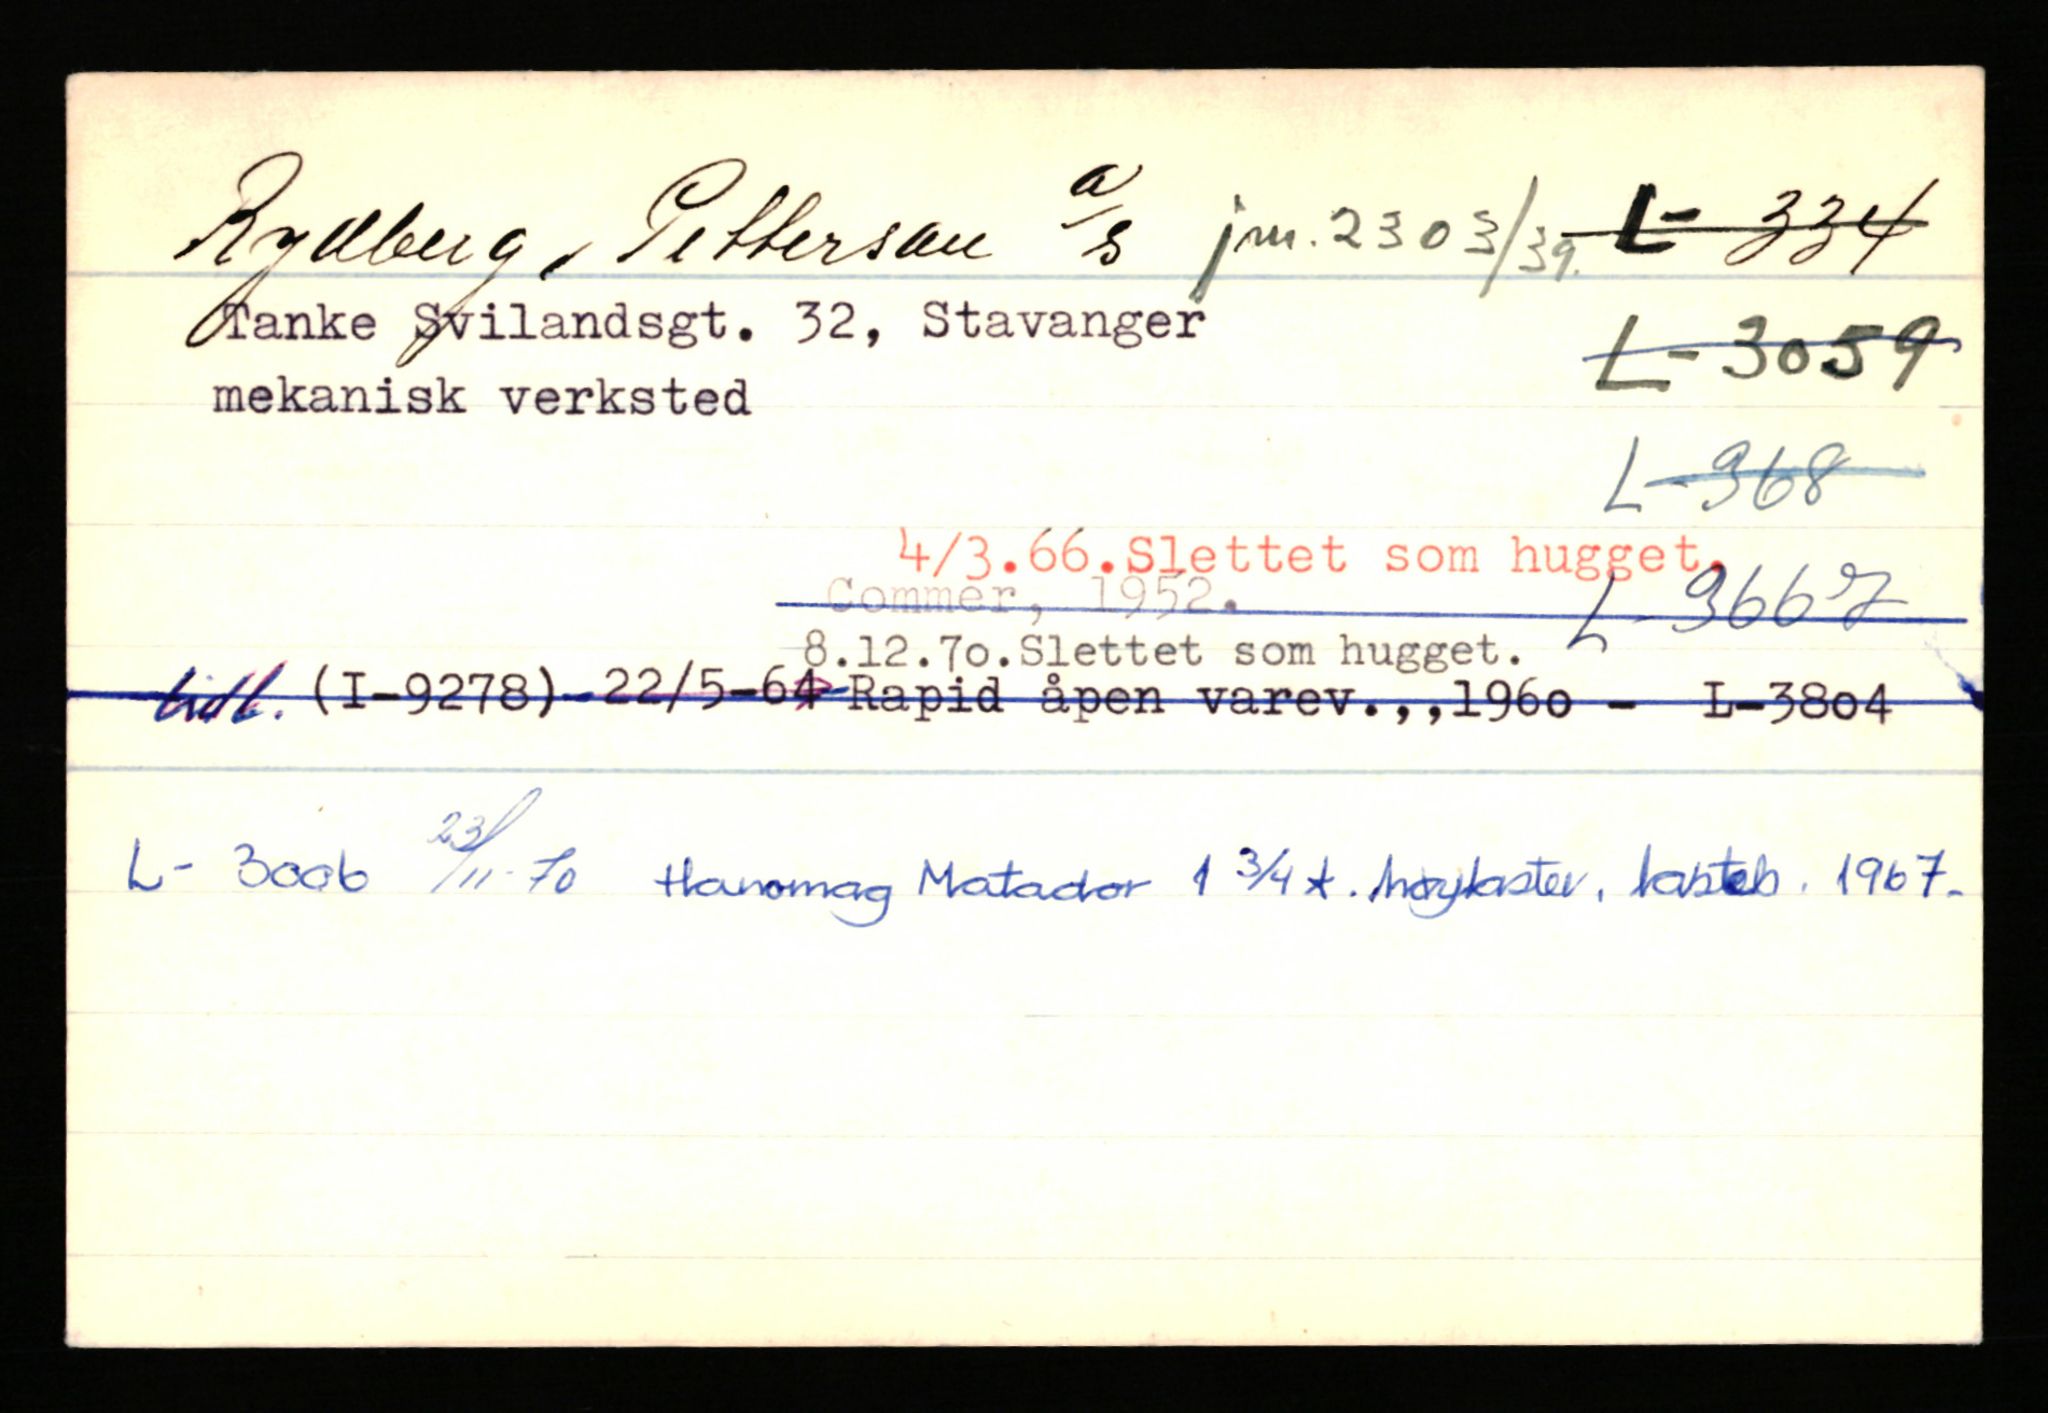 Rydberg, Pettersen a/s jnr. 2303/39. L- 334
Tanke Svilandsgt. 32, Stavanger
L-3059
mekanisk verksted
L-368
4/3.66.Slettet som hugget.
Commer, 1952. L-3667
8.12.7o.Slettet som hugget.
tidl. (I-9278) 22/5-64 Rapid åpen varev.,,196o - L-38o4
L- 3006 23/11-70 Hanomag Matador 1 3/4 t. høylaster, lasteb. 1967.